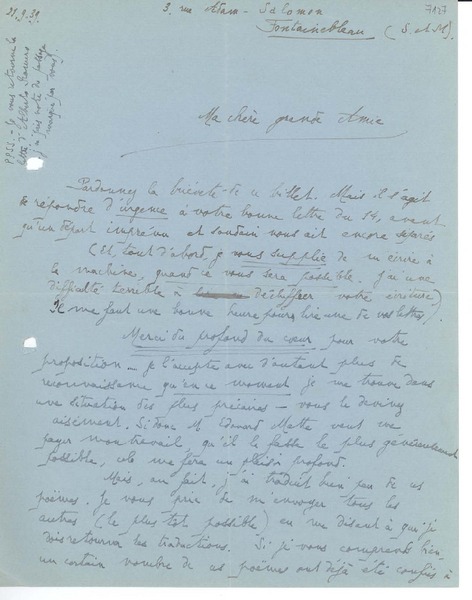 21.9.39.
3, rue Adam-Salomon
Fontainebleau (S. et M).
7127
P.P.S.S. - Je vous retourne la
lettre d'
j'ai pris note du passage
marqué par vous.
Ma chère grande Amie
Pardonnez la brièveté de ce billet. Mais il s'agit
de répondre d'urgence à votre bonne lettre du 14, avant
qu'un départ imprévu et soudain nous ait encore séparés
(Et, tout d'abord, je vous supplie de m'écrire à
la machine, quand ce vous sera possible. J'ai une
difficulté terrible à déchiffrer votre écriture)
Il me faut une bonne heure pour lire une de vos lettres).
Merci du profond du cœur pour votre
proposition... je l'accepte avec d'autant plus de
reconnaissance qu'en ce moment je me trouve dans
une situation des plus précaires - vous le devinez
aisément. Si donc M. Edouard Matte veut
payer mon travail, qu'il le fasse le plus généreusement
possible, cela me fera un plaisir profond.
Mais, au fait, j'ai traduit bien peu de ces
poèmes. Je vous prie de m'envoyer tous les
autres (le plus tôt possible) en me disant à qui je
dois retourner les traductions. Si je vous comprends bien
un certain nombre de ces poèmes ont déjà été confiés à